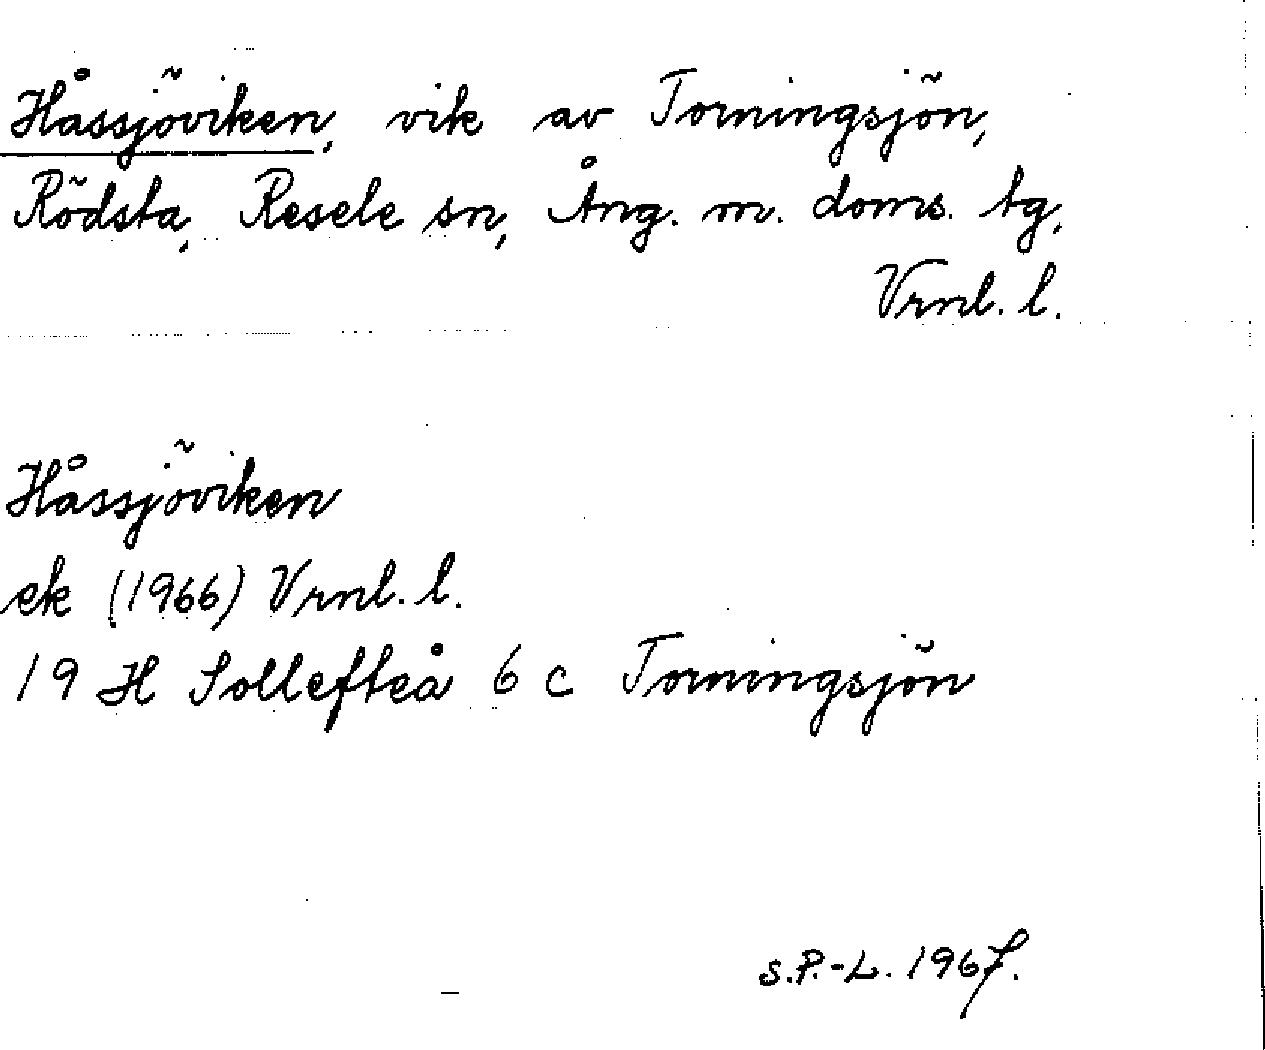 Håssjöviken, vik av Torningsjön,
Rödsta, Resele sn, Ång. m. doms. tg,
Vrnl. l.
Håssjöviken
ek (1966) Vrnl. l.
19 H Sollefteå 6 c Torningsjön
S.P.-L. 1967.